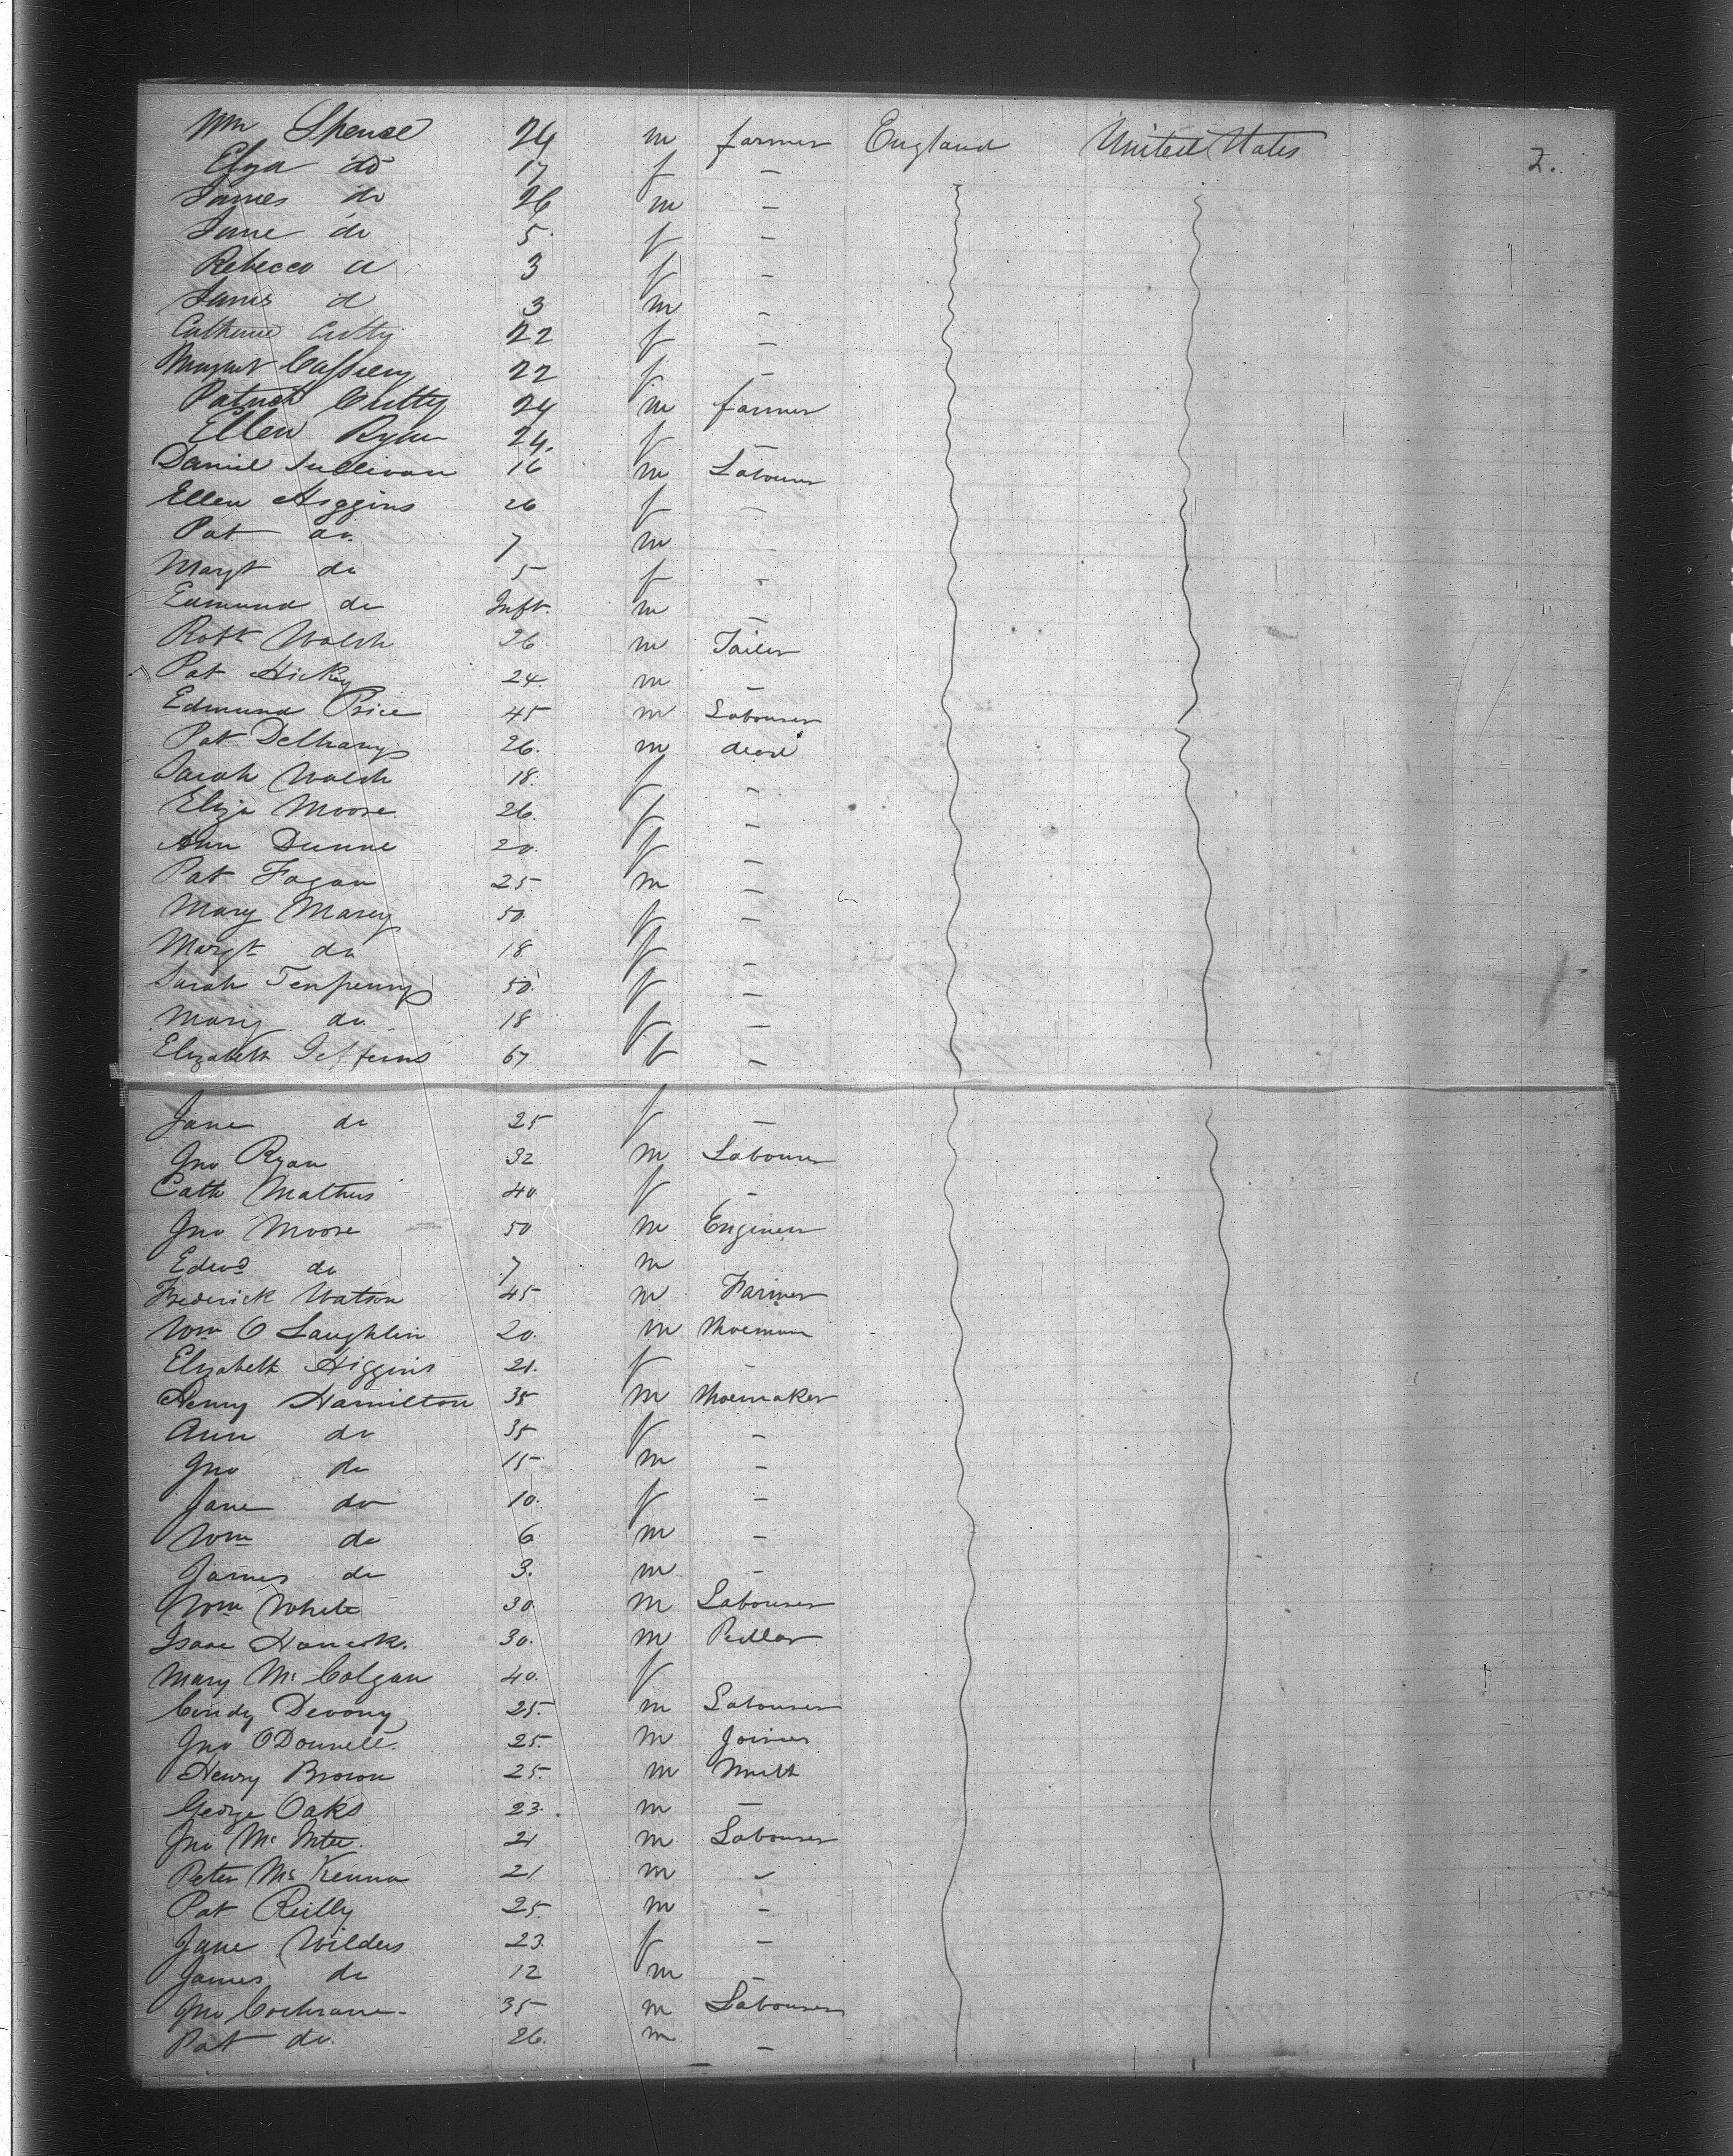 Wm Spence 24 m farmer England United States
2.
Eliza do 17 f –
James do 26 m –
Jane do 5 f –
Rebecca d 3 f –
James d 3 m –
Catherine 22 f –
Margret 22 f –
Patrick 24 m farmer
Ellen Ryan 24. f –
Daniel Sullivan 16 m Labourer
Ellen Higgins 26 f –
Pat do 7 m –
Margt do 5 f –
Edmund do Inft. m –
Robt Walsh 26 m Tailor
Pat Hickey 24. m –
Edmund Price 45 m Labourer
Pat Delhany 26. m
Sarah Walsh 18. f –
Eliza Moore 26. f –
Ann Dunne 20. f –
Pat Fagan 25 m –
Mary Marey 50. f –
Margt do 18. f –
Sarah Tenpenny 50. f –
Mary do 18 f –
Elizabeth 67 f –
Jane do 25 f –
Jno Ryan 32 m Labourer
Cath Mathews 40. f –
Jno Moore 50 m Engineer
Edwd do 7 m
Frederick Watson 45 m Farmer
Wm O Laughlin 20. m
Elizabeth Higgins 21. f –
Henry Hamilton 35 m Shoemaker
Ann do 35 f –
Jno do 15 m –
Jane do 10. f –
Wm do 6 m –
James do 3. m –
Wm White 30. m Labourer
Isaac 30. m Pedlar
Mary Mc Colgan 40. f
Condy Devony 25. m Labourer
Jno O Donnell 25. m Joiner
Henry Brown 25. m Smith
George Oaks 23. m –
Jno Mc 21 m Labourer
Peter Mc Kenna 21 m
Pat Reilly 25. m –
Jane Wilders 23. f –
James do 12 m –
Jno Cochrane 35 m Labourer
Pat do. 26. m –